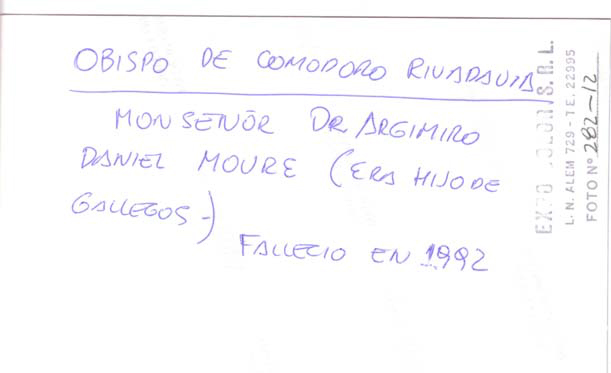 OBISPO DE COMODORO RIVADAVIA
MONSEÑOR DR ARGIMIRO
DANIEL MOURE (ERA HIJO DE
GALLEGOS-)
FALLECIO EN 1992
EXPO COLOR S.R.L.
L. N. ALEM 729 - T E. 22995
FOTO Nº 282-12